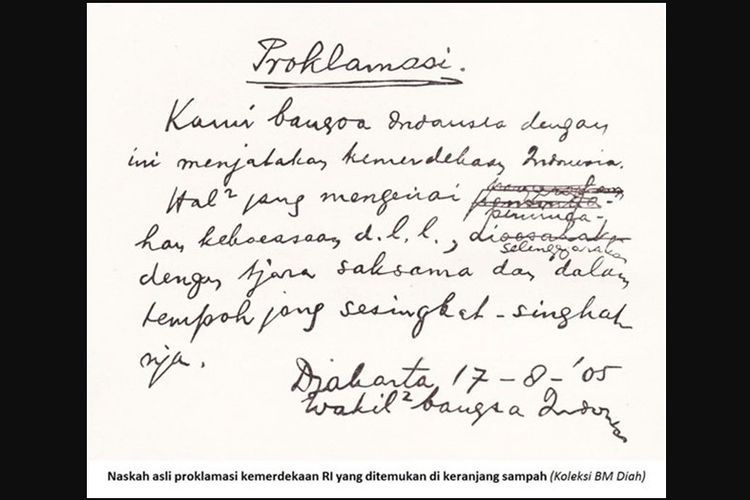 Proklamasi.
Kami bangsa Indonesia dengan
ini menjatakan kemerdekaan Indonesia.
Hal² jang mengenai
peminda-
han kekoeasaan d.l.l.,
diselenggarakan
dengan tjara saksama dan dalam
tempoh jang sesingkat-singkat
nja.
Djakarta, 17 - 8 - '05
Wakil² bangsa Indonesia
Naskah asli proklamasi kemerdekaan RI yang ditemukan di keranjang sampah (Koleksi BM Diah)